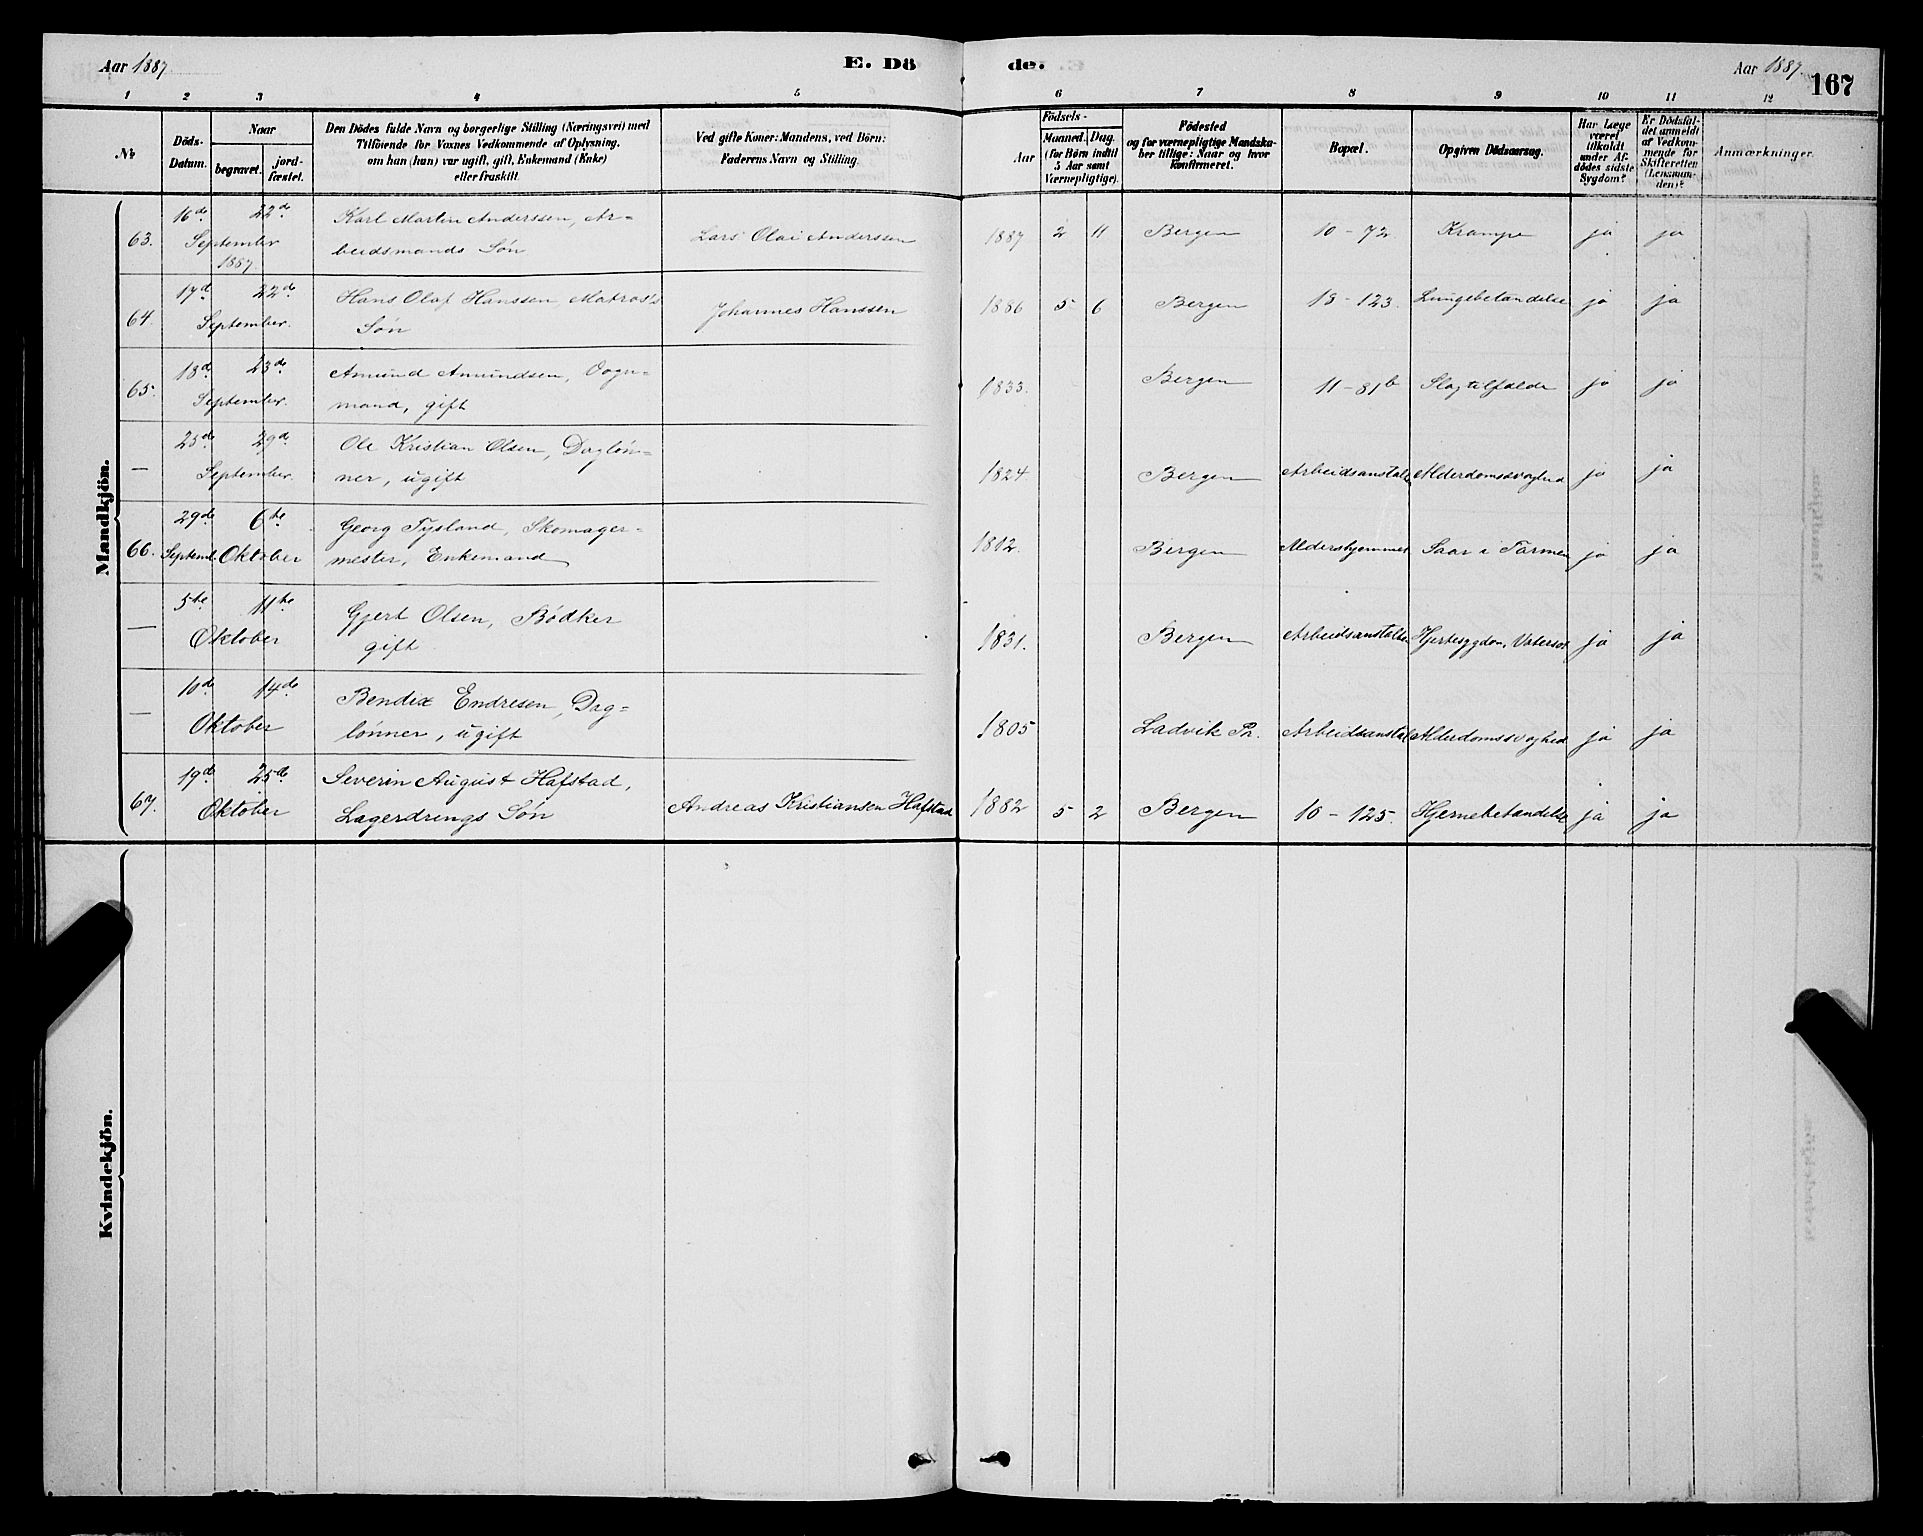 Aar 1887.
E. Dö
de.
Aar 1887.
167
1 2 3 4 5 6 7 8 9 10 11 12
№
Döds-
Datum.
Naar
begravet.
jord-
fæstet.
Den Dödes fulde Navn og borgerlige Stilling (Næringsvei) med
Tilföiende for Voxnes Vedkommende af Oplysning,
om han (hun) var ugift, gift, Enkemand (Enke)
eller fraskilt.
Ved gifte Koner: Mandens, ved Börn:
Faderens Navn og Stilling.
Födsels-
Aar
Maaned.
Dag.
(for Börn indtil
5 Aar samt
Værnepligtige).
Födested
og for værnepligtige Mandska-
ber tillige: Naar og hvor
konfirmeret.
Bopæl.
Opgiven Dödsaarsag.
Har Læge
været
tilkaldt
under Af-
dödes sidste
Sygdom?
Er Dödsfal-
det anmeldt
af Vedkom-
mende for
Skifteretten
(Lensman-
den)?
Anmærkninger.
Mandkjön.
63. 16de 22de September 1887. Karl Martin Anderssen, Ar=
beidsmands Søn Lars Olai Anderssen 1887 2 11 Bergen 10 - 72 Krampe ja ja
64. 17de 22de September. Hans Olaf Hanssen Matros's
Søn Johannes Hanssen 1886 5 6 Bergen 13 - 123. Lungebetændelse ja ja
65. 18de 23de September. Amund Amundsen, Vogn=
mand, gift 1833. Bergen 11 - 81b Slagtilfælde ja ja
— 25de 29de September. Ole Kristian Olsen, Dagløn=
ner, ugift 1824 Bergen Arbeidsanstalten Alderdomssvaghed ja ja
66. 29de Septemb. 6te Oktober Georg Tysland, Skomager=
mester, Enkemand 1812. Bergen Aldershjemmet Saar i Tarmen ja ja
— 5te 11te Oktober Gjert Olsen, Bødker
gift 1831. Bergen Arbeidsanstalten Hjertesygdom, Vatersot ja ja
— 10de 14de Oktober Bendix Endresen, Dag=
lønner, ugift 1805 Ladvik Pr. Arbeidsanstal Alderdomssvaghed ja ja
67. 19de 25de Oktober Severin August Hafstad,
Lagerdrengs Søn Andreas Kristiansen Hafstad 1882 5 2 Bergen 10 - 125. Hjernebetændelse ja ja
Kvindekjön.